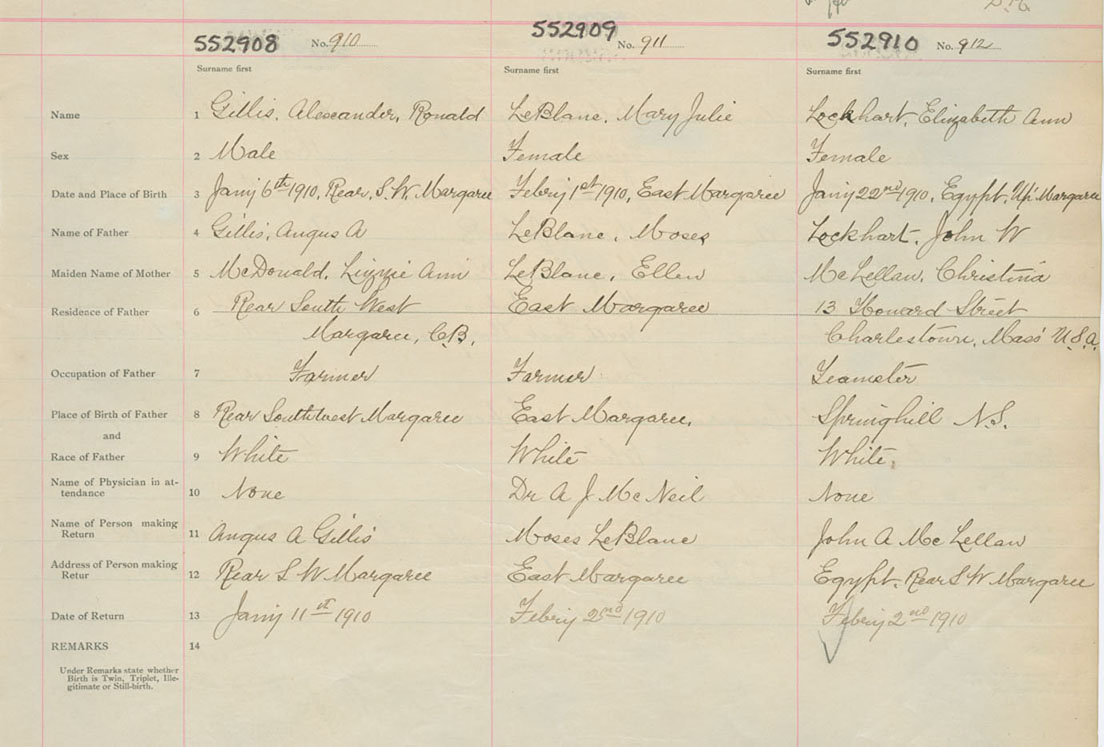 552908 No. 910 552909 No. 911 552910 No. 912
Surname first Surname first Surname first
Name 1 Gillis, Alexander, Ronald LeBlanc, Mary Julie Lockhart, Elizabeth Ann
Sex 2 Male Female Female
Date and Place of Birth 3 Jany 6th 1910, Rear, S.W. Margaree Febry 1st 1910, East Margaree Jany 22nd 1910, Egypt, Up' Margaree
Name of Father 4 Gillis, Angus A LeBlanc, Moses Lockhart, John W
Maiden Name of Mother 5 McDonald, Lizzie Ann LeBlanc, Ellen McLellan, Christina
Residence of Father 6 Rear South West East Margaree 13 Howard Street
Margaree, C.B. Charlestown, Mass' U.S.A.
Occupation of Father 7 Farmer Farmer Teamster
Place of Birth of Father 8 Rear Southwest Margaree East Margaree, Springhill N.S.
and
Race of Father 9 White White White,
Name of Physician in at-
tendance 10 None Dr A J McNeil None
Name of Person making
Return 11 Angus A Gillis Moses LeBlanc John A McLellan
Address of Person making
Retur 12 Rear S W Margaree East Margaree Egypt, Rear S W Margaree
Date of Return 13 Jany 11st 1910 Febry 2nd 1910 Febry 2nd 1910
REMARKS 14
Under Remarks state whether
Birth is Twin, Triplet, Ille-
gitimate or Still-birth.